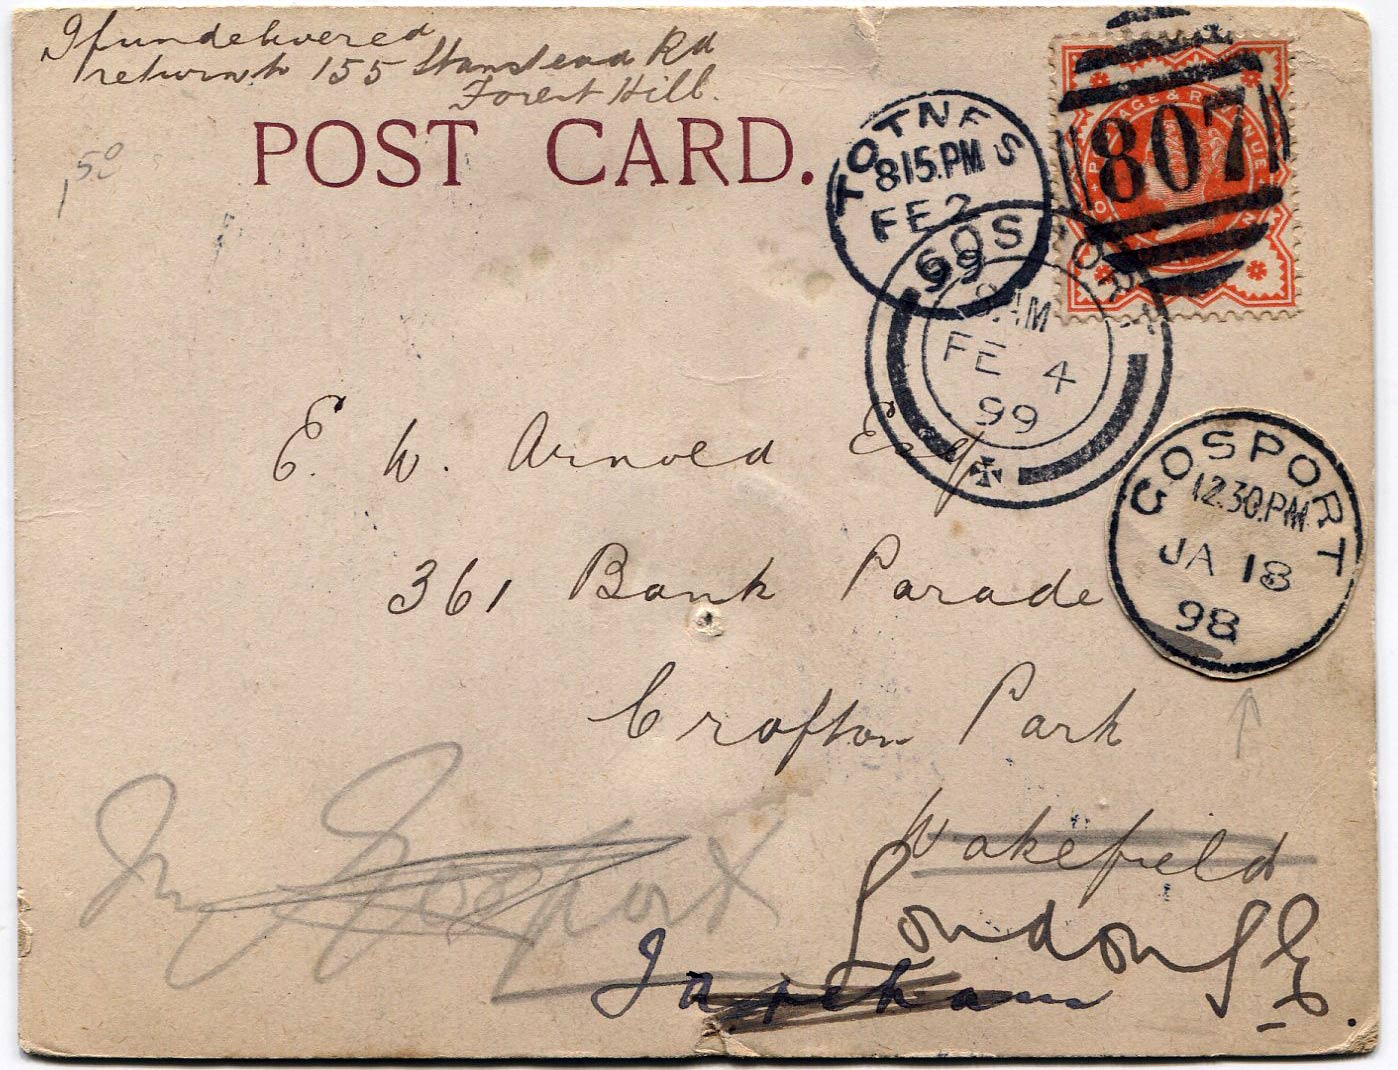 If undelivered
return to 155 Stanstead Rd
Forest Hill.
POST CARD.
1 50
TOTNES
8 15.PM
FE 2
99
807
POSTAGE & REVENUE
GOSPORT
9 AM
FE 4
99
GOSPORT
12.30.PM
JA 18
98
E. W. Arnold Esq
361 Bank Parade
Crofton Park
Wakefield
Gosport
London S E.